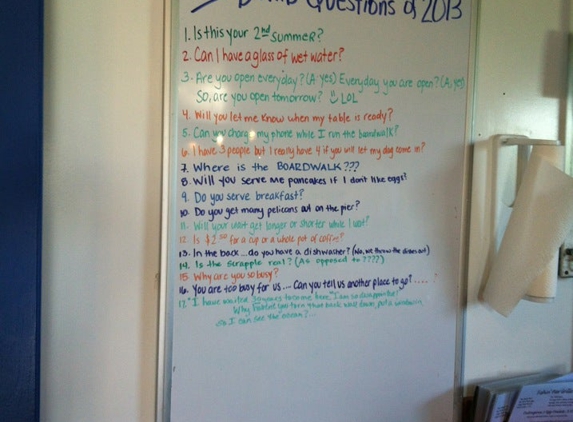 Questions of 2013
1. Is this your 2nd Summer?
2. Can I have a glass of wet water?
3. Are you open everyday? (A: yes) Everyday you are open? (A: yes)
So, are you open tomorrow? LOL
4. Will you let me know when my table is ready?
5. Can you charge my phone while I run the boardwalk?
6. I have 3 people but I really have 4 if you will let my dog come in?
7. Where is the BOARDWALK???
8. Will you serve me pancakes if I don't like eggs?
9. Do you serve breakfast?
10. Do you get many pelicans out on the pier?
11. Will your wait get longer or shorter while I wait?
12. Is $2.00 for a cup or a whole pot of coffee?
13. In the back... do you have a dishwasher? (No, we throw the dishes out)
14. Is the scrapple real? (As opposed to ????)
15. Why are you so busy?
16. You are too busy for us.... Can you tell us another place to go?.....
17. "I have waited years to come here, I am so disappointed
Why haven't you torn that back wall down, put a window in
so I can see the ocean?...